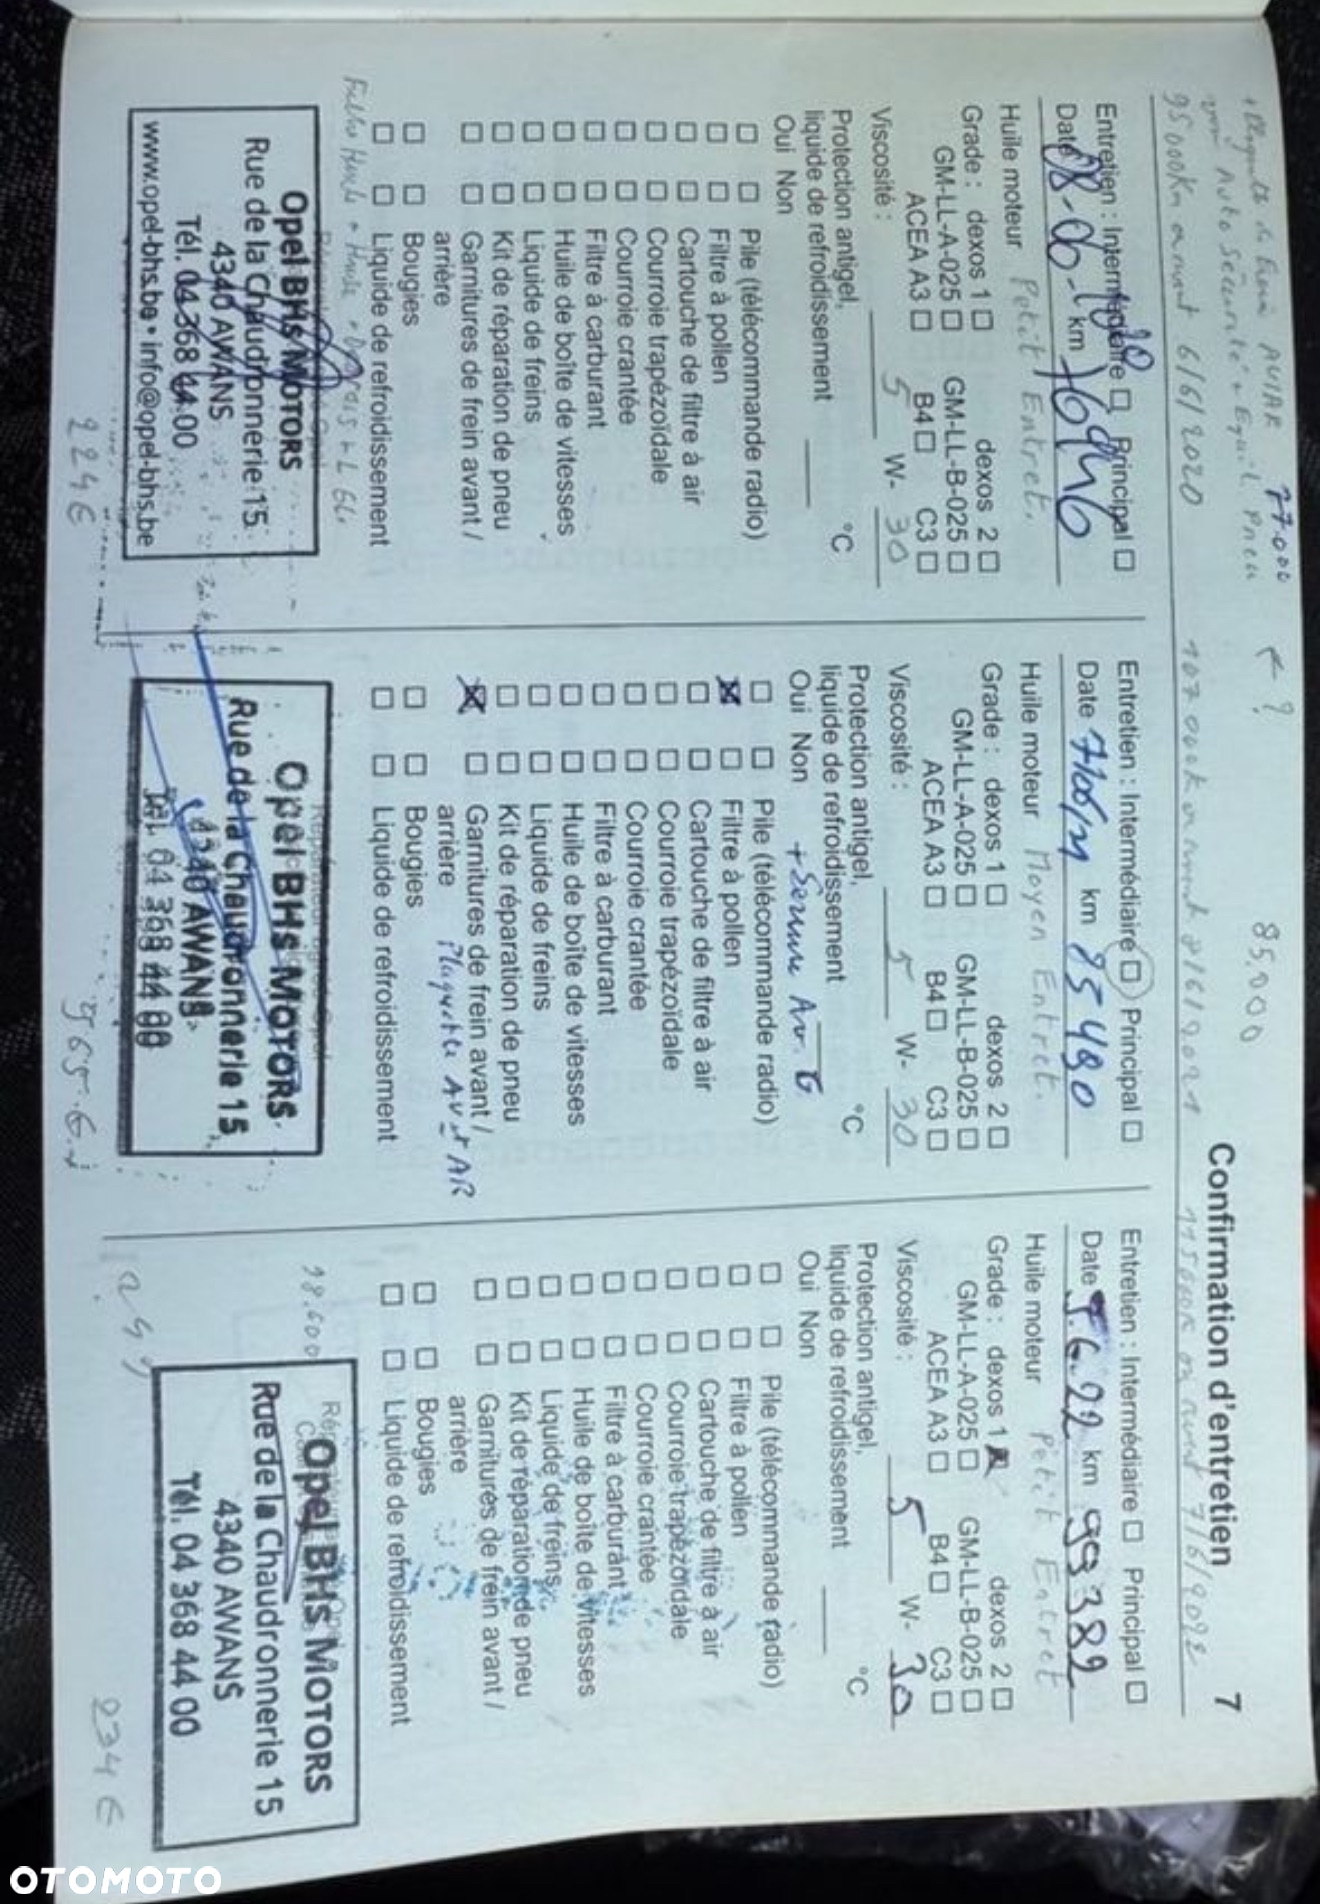 Confirmation d'entretien 7
+ Plaquette de frein AV/AR 77.000 ?
voir Auto Sécurité + Equil. Pneu 85,000
95000km avant 6/6/2020 107 000k avant 8/6/2021 115000k avant 7/6/2022
Entretien : Intermédiaire Principal
Date 08-06- km
Huile moteur Petit Entret.
Grade : dexos 1 dexos 2
GM-LL-A-025 GM-LL-B-025
ACEA A3 B4 C3
Viscosité : 5 W- 30
Protection antigel,
liquide de refroidissement °C
Oui Non
Pile (télécommande radio)
Filtre à pollen
Cartouche de filtre à air
Courroie trapézoïdale
Courroie crantée
Filtre à carburant
Huile de boîte de vitesses
Liquide de freins
Kit de réparation de pneu
Garnitures de frein avant /
arrière
Bougies
Liquide de refroidissement
Filtre Huile + Huile +
Opel BHs MOTORS
Rue de la Chaudronnerie 15
4340 AWANS
Tél. 04 368 44 00
www.opel-bhs.be • info@opel-bhs.be
224€
Entretien : Intermédiaire Principal
Date km 85490
Huile moteur Moyen Entret.
Grade : dexos 1 dexos 2
GM-LL-A-025 GM-LL-B-025
ACEA A3 B4 C3
Viscosité : 5 W- 30
Protection antigel,
liquide de refroidissement °C
Oui Non + Serrure Av. G
Pile (télécommande radio)
Filtre à pollen
Cartouche de filtre à air
Courroie trapézoïdale
Courroie crantée
Filtre à carburant
Huile de boîte de vitesses
Liquide de freins
Kit de réparation de pneu
Garnitures de frein avant /
arrière Plaquette AV + AR
Bougies
Liquide de refroidissement
Opel BHs MOTORS
Rue de la Chaudronnerie 15
4340 AWANS
Tél. 04 368 44 00
565.€
Entretien : Intermédiaire Principal
Date 7.6.22 km 99389
Huile moteur Petit Entret
Grade : dexos 1 dexos 2
GM-LL-A-025 GM-LL-B-025
ACEA A3 B4 C3
Viscosité : 5 W- 30
Protection antigel,
liquide de refroidissement °C
Oui Non
Pile (télécommande radio)
Filtre à pollen
Cartouche de filtre à air
Courroie trapézoïdale
Courroie crantée
Filtre à carburant
Huile de boîte de vitesses
Liquide de freins
Kit de réparation de pneu
Garnitures de frein avant /
arrière
Bougies
Liquide de refroidissement
98.600
Opel BHs MOTORS
Rue de la Chaudronnerie 15
4340 AWANS
Tél. 04 368 44 00
234€
OTOMOTO